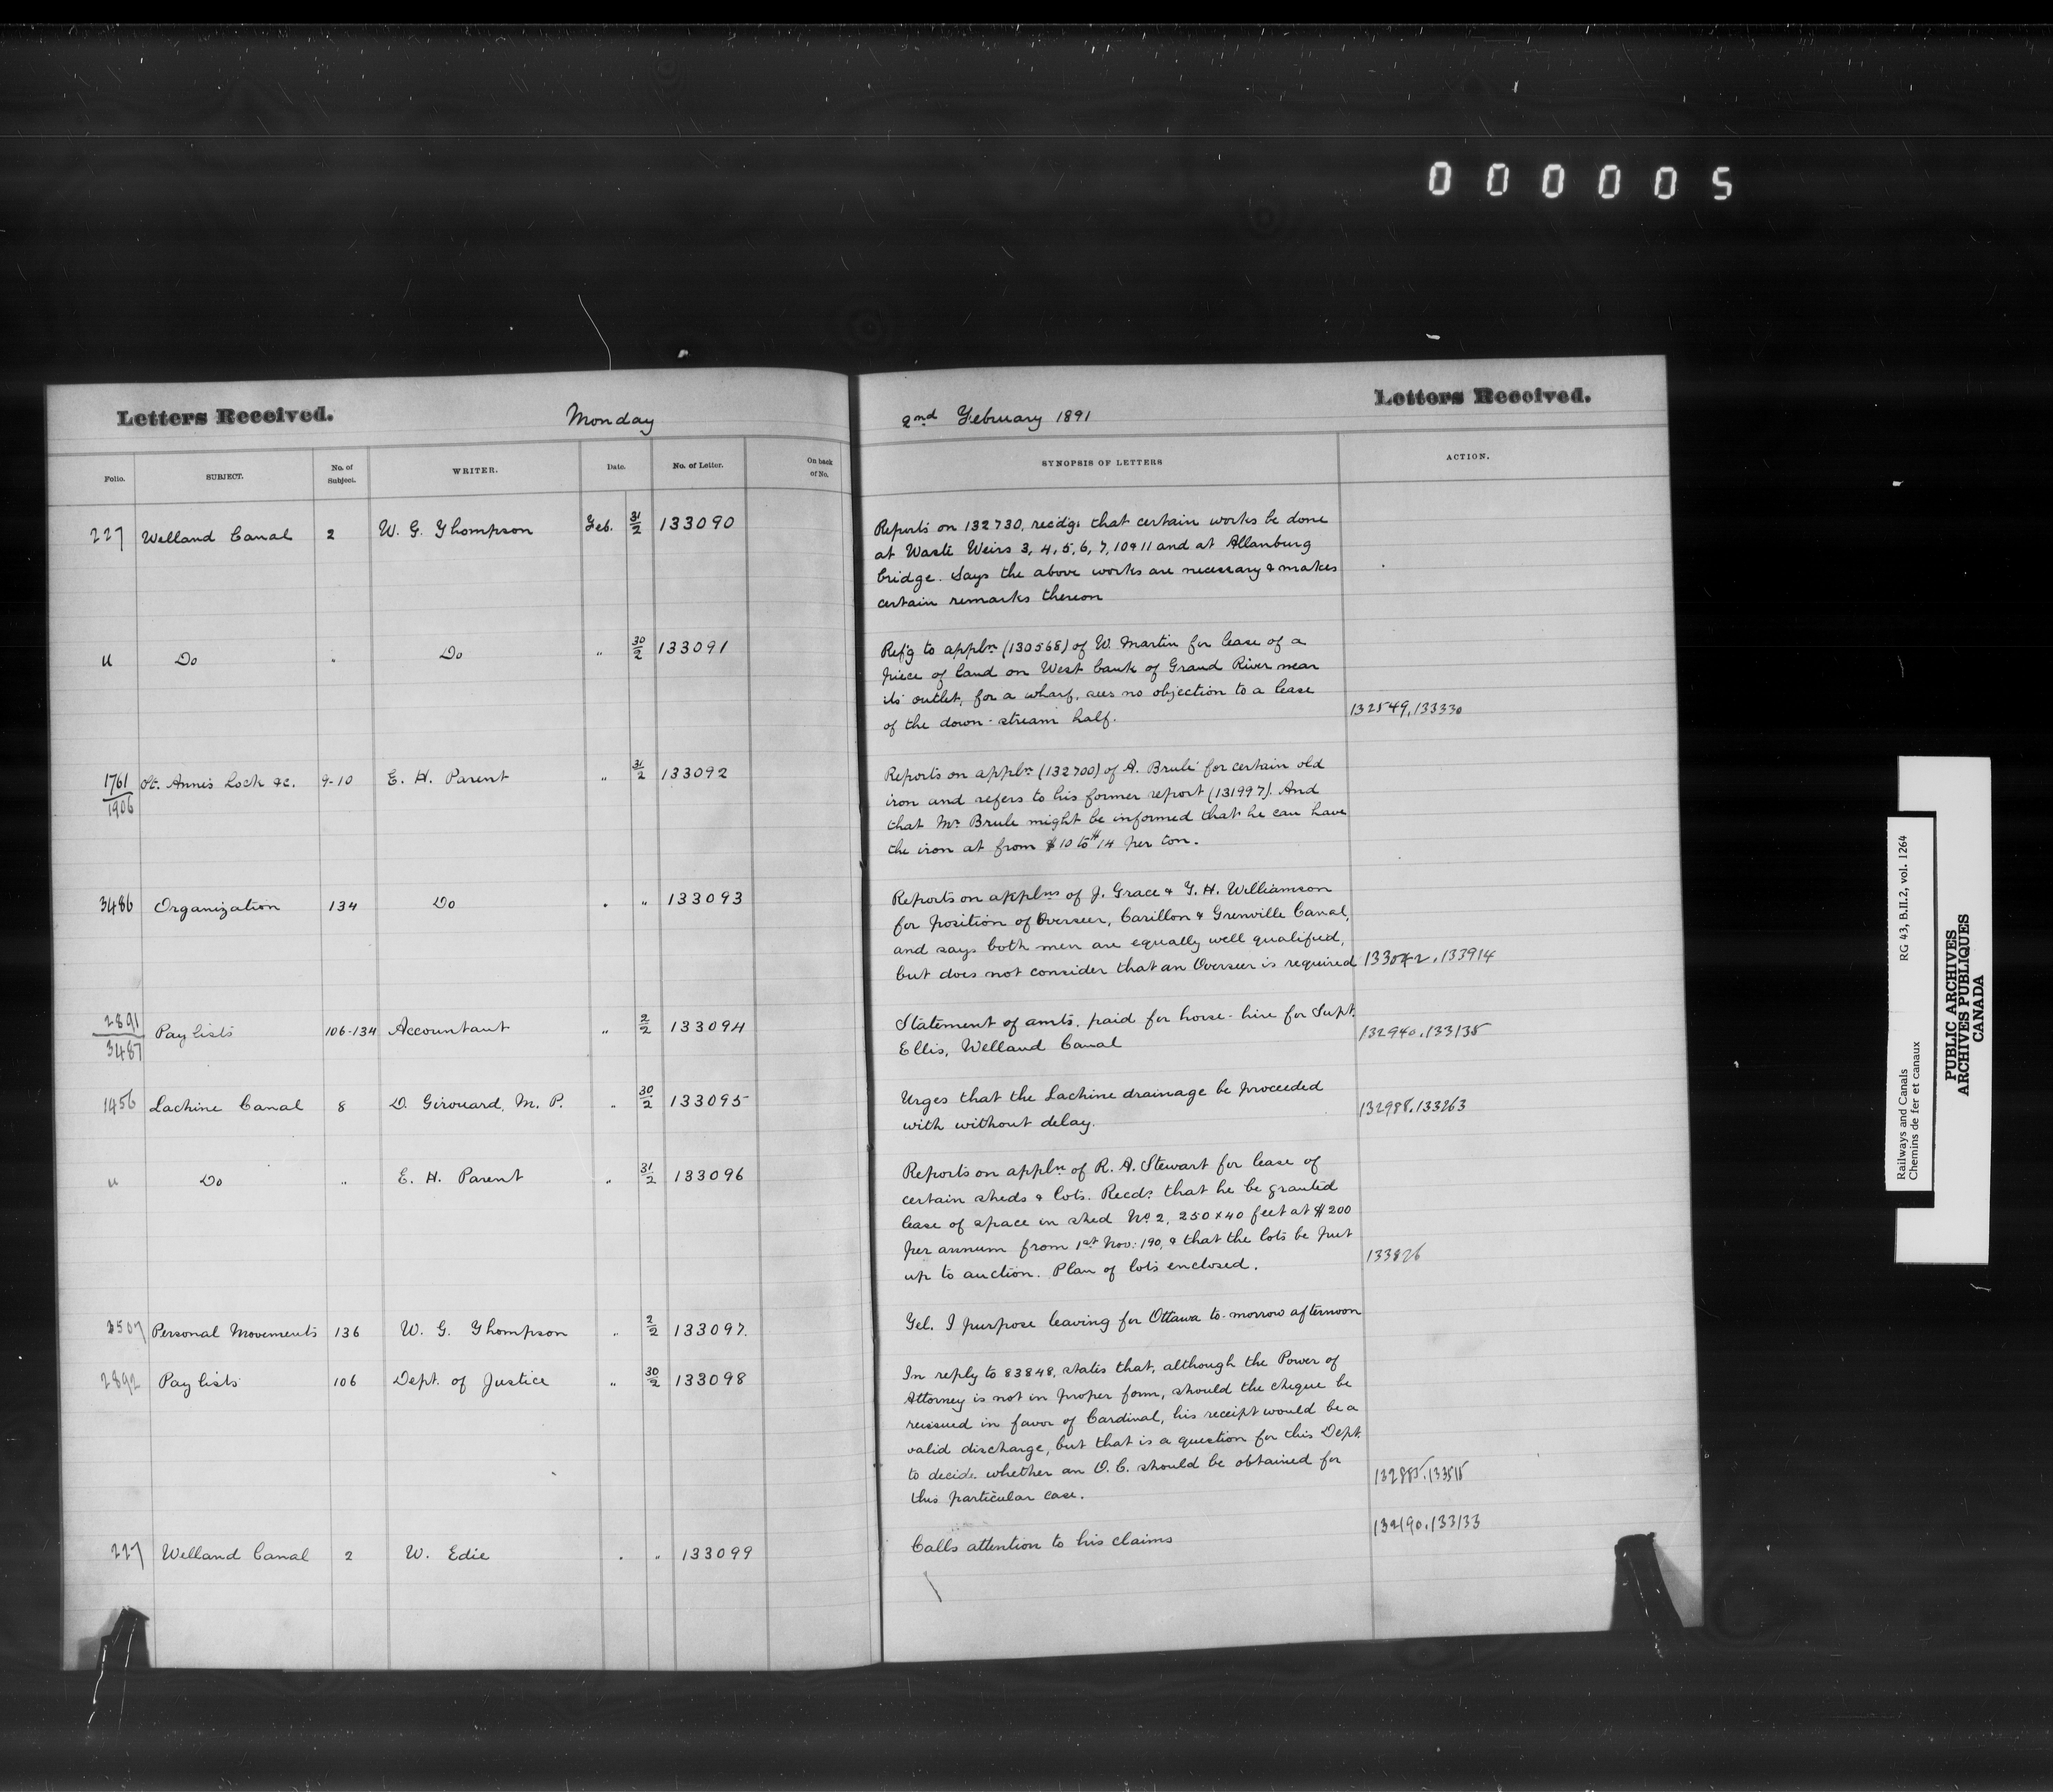 000005
Letters Received.
Monday
2nd February 1891
Letters Received.
Folio.
SUBJECT.
No. of Subject.
WRITER.
Date.
No. of Letter.
On back of No.
SYNOPSIS OF LETTERS
ACTION.
227 Welland Canal 2 W. G. Thompson Feb. 31/2 133090
Reports on 132730, recdg. that certain works be done
at Waste Weirs 3, 4, 5, 6, 7, 10 & 11 and at Allanburg
bridge. Says the above works are necessary & makes
certain remarks thereon
" Do " Do " 30/2 133091
Ref'g to appln (130568) of W. Martin for lease of a
piece of land on West bank of Grand River near
its outlet, for a wharf, sees no objection to a lease
of the down-stream half.
132549, 133330
1761/1906 St. Anne's Lock &c. 9-10 E. H. Parent " 31/2 133092
Reports on appln (132700) of A. Brulé for certain old
iron and refers to his former report (131997). And
that Mr Brule might be informed that he can have
the iron at from $10 to $14 per ton.
3486 Organization 134 Do " " 133093
Reports on applns of J. Grace & T. H. Williamson
for position of Overseer, Carillon & Grenville Canal,
and says both men are equally well qualified,
but does not consider that an Overseer is required
133042, 133914
2891/3487 Pay lists 106-134 Accountant " 2/2 133094
Statement of amts. paid for horse-hire for Supt.
Ellis, Welland Canal
132940, 133135
1456 Lachine Canal 8 D. Girouard, M. P. " 30/2 133095
Urges that the Lachine drainage be proceeded
with without delay.
132988, 133263
" Do " E. H. Parent " 31/2 133096
Reports on appln of R. A. Stewart for lease of
certain sheds & lots. Recds. that he be granted
lease of space in shed No 2, 250 x 40 feet at $200
per annum from 1st Nov: '90, & that the lots be put
up to auction. Plan of lots enclosed.
133826
3507 Personal Movements 136 W. G. Thompson " 2/2 133097.
Tel. I purpose leaving for Ottawa to-morrow afternoon
2892 Pay lists 106 Dept. of Justice " 30/2 133098
In reply to 83848, states that, although the Power of
Attorney is not in proper form, should the cheque be
reissued in favor of Cardinal, his receipt would be a
valid discharge, but that is a question for this Dept.
to decide whether an O. C. should be obtained for
this particular case.
132885, 133515
227 Welland Canal 2 W. Edie " " 133099
Calls attention to his claims
132190, 133133
Railways and Canals RG 43, B.II.2, vol. 1264
Chemins de fer et canaux
PUBLIC ARCHIVES
ARCHIVES PUBLIQUES
CANADA